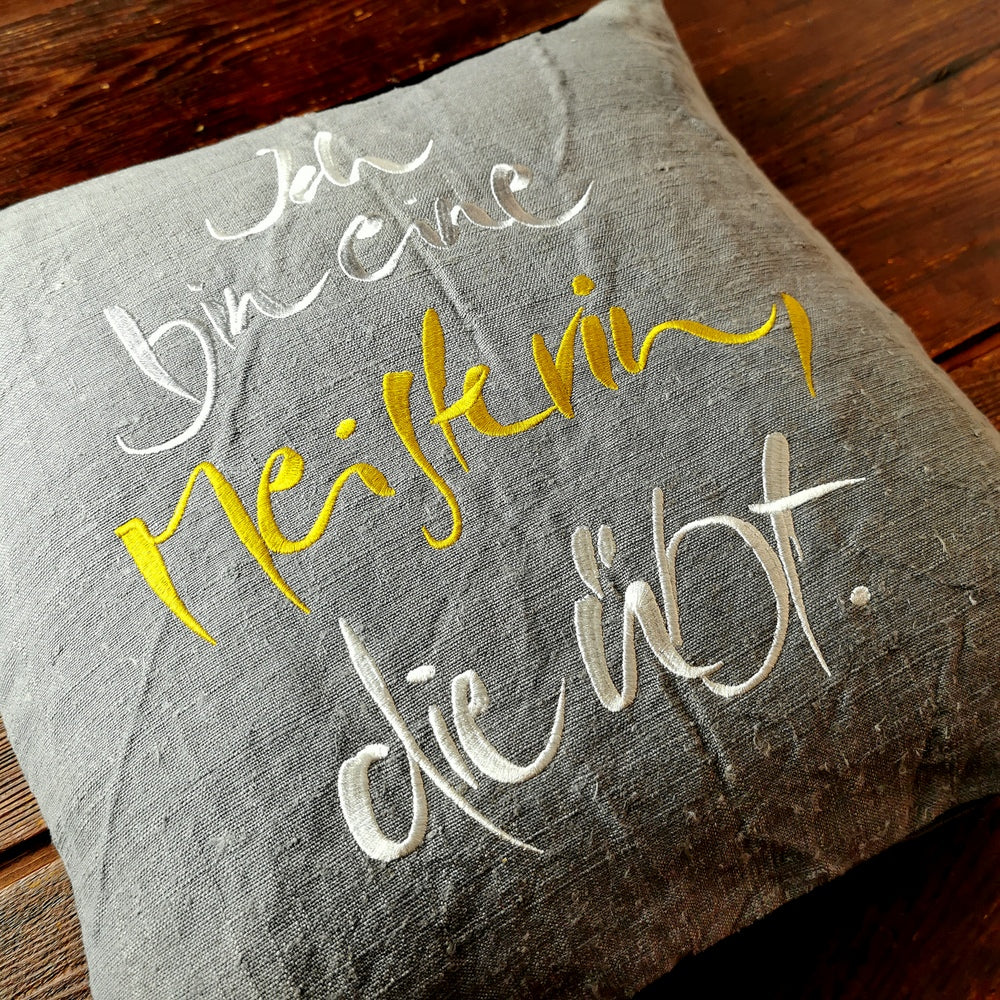 Ich
bin eine
Meisterin,
die übt.